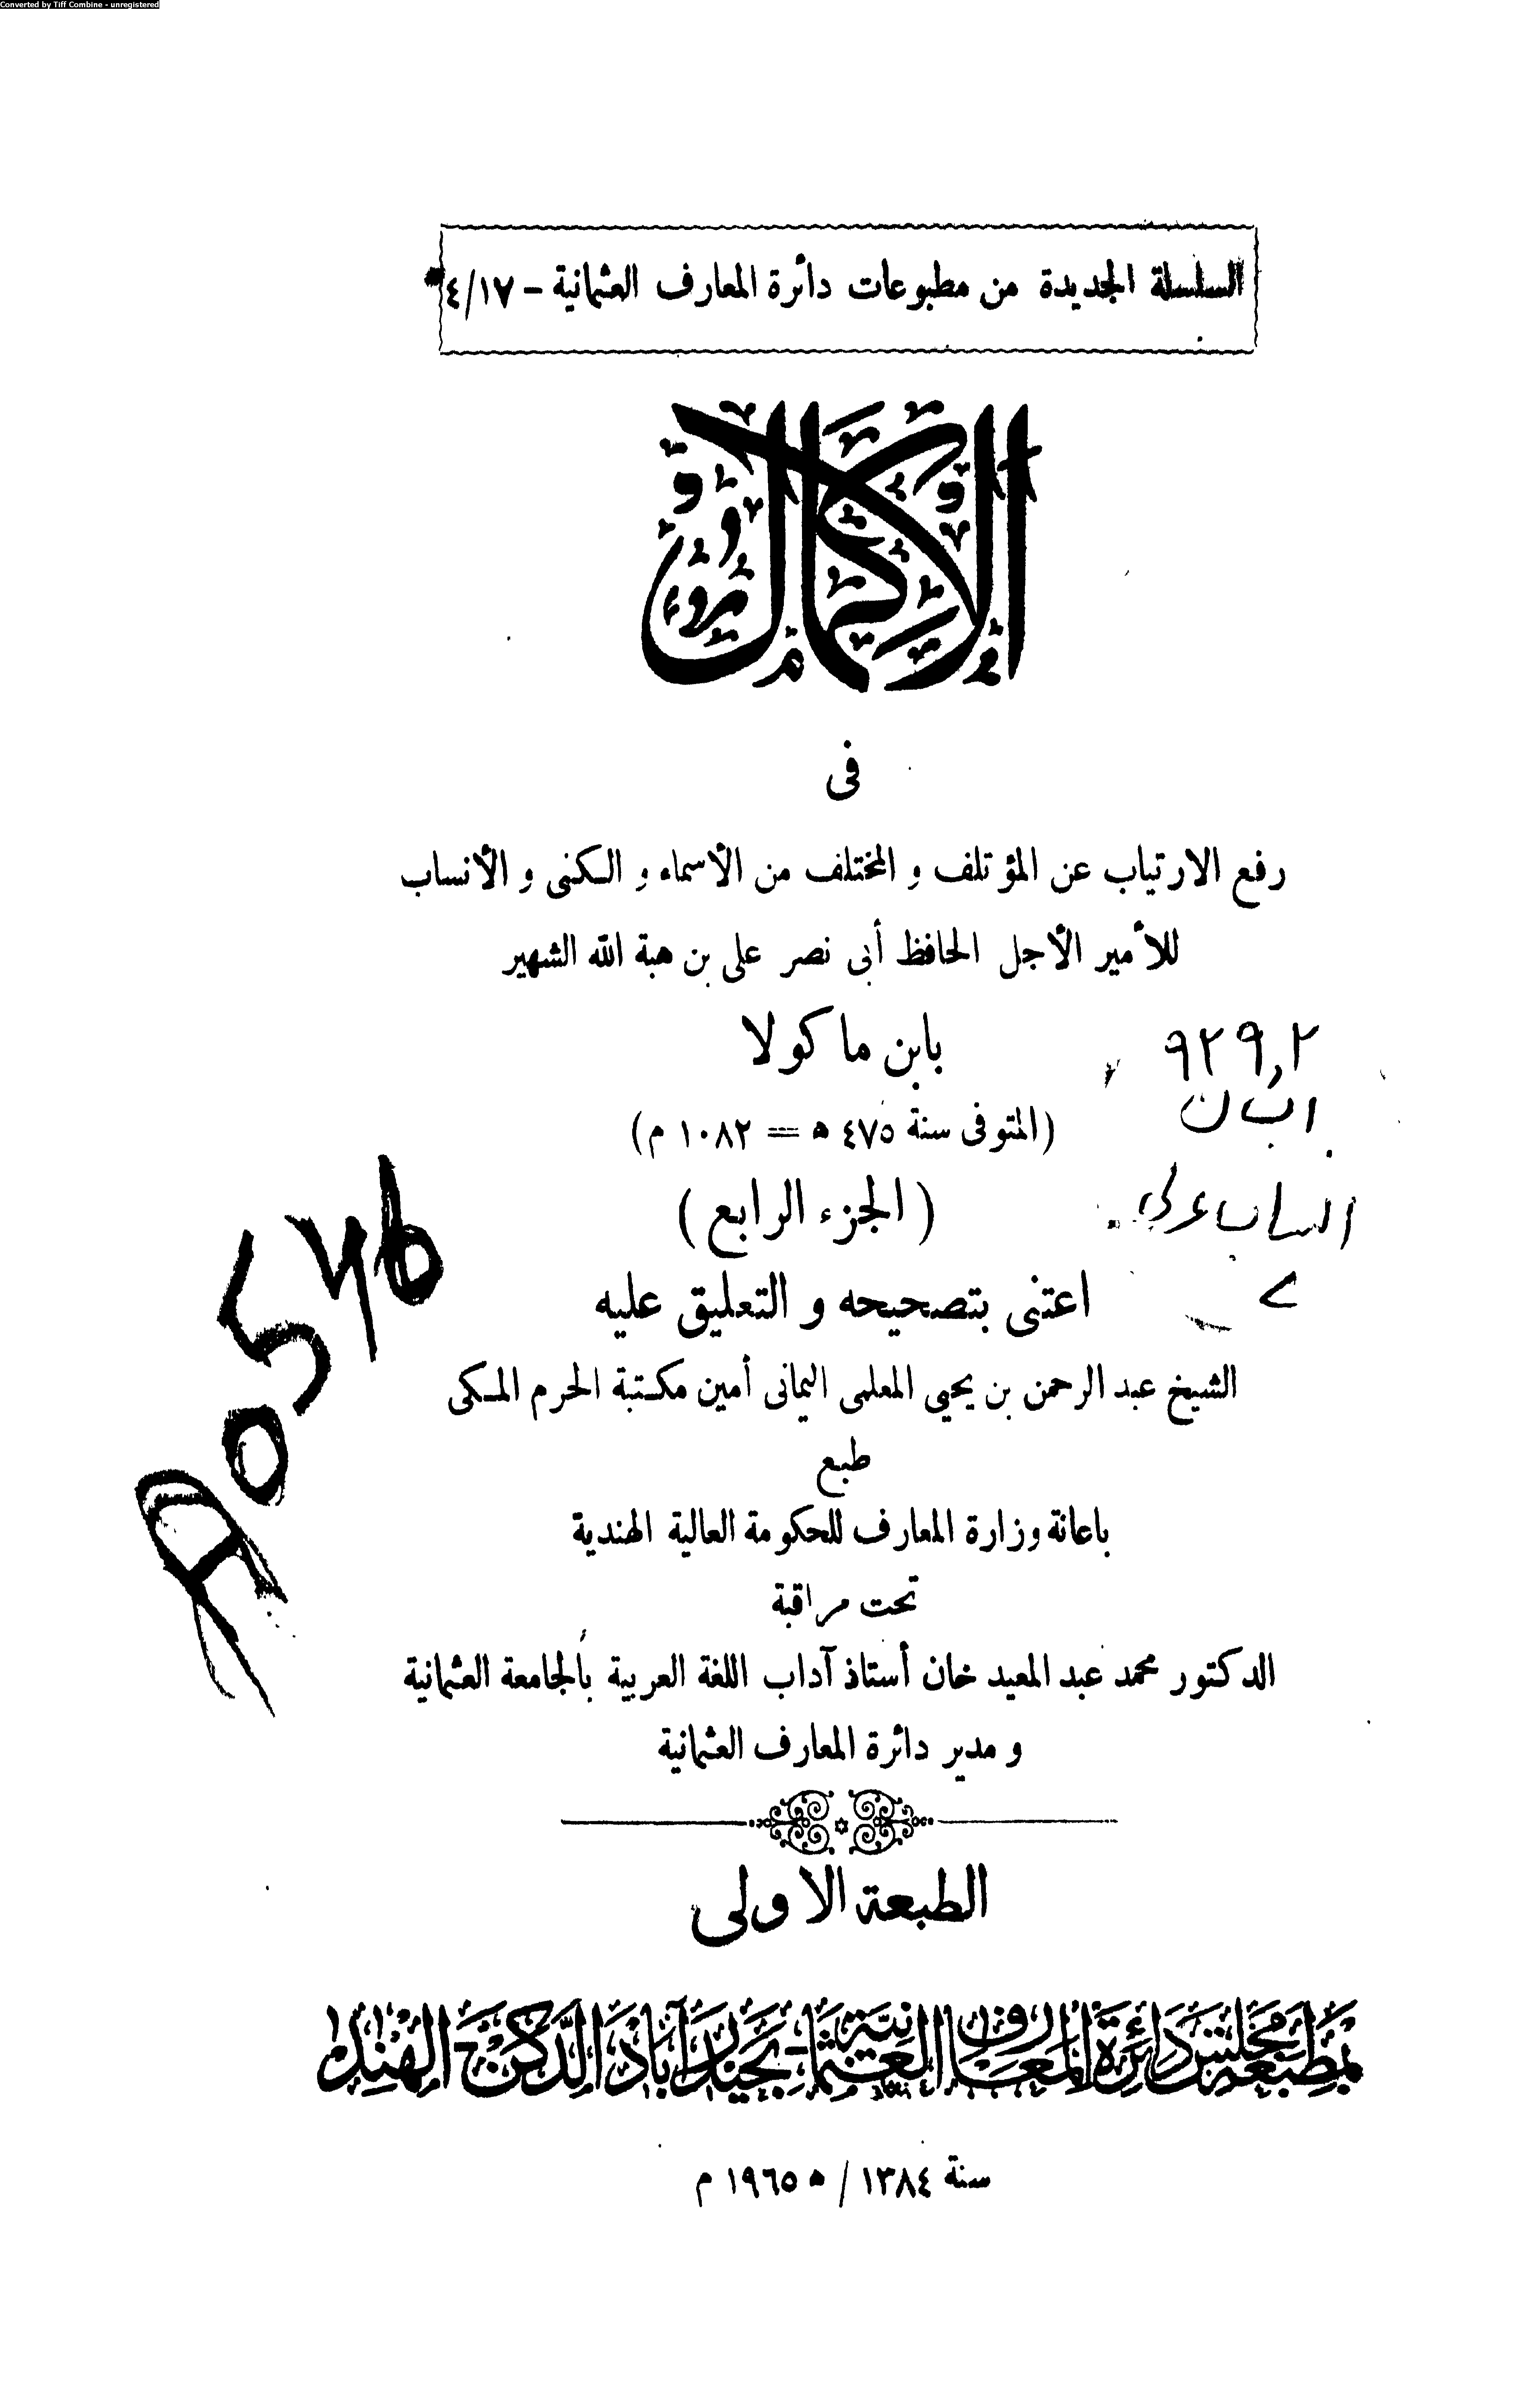 Converted by Tiff Combine - unregistered
السلسلة الجديدة من مطبوعات دائرة المعارف العثمانية - ٤/١٧
الإكمال
فى
رفع الارتياب عن المؤتلف و المختلف من الأسماء و الكنى و الأنساب
للأمير الأجل الحافظ أبى نصر على بن هبة الله الشهير
بابن ماكولا
٩٢٩,٢
(المتوفى سنة ٤٧٥ ه = ١٠٨٢ م)
(الجزء الرابع)
اعتنى بتصحيحه و التعليق عليه
الشيخ عبد الرحمن بن يحيى المعلمى اليمانى أمين مكتبة الحرم المكى
طبع
باعانة وزارة المعارف للحكومة العالية الهندية
تحت مراقبة
الدكتور محمد عبد المعيد خان أستاذ آداب اللغة العربية بالجامعة العثمانية
و مدير دائرة المعارف العثمانية
الطبعة الاولى
بمطبعة مجلس دائرة المعارف العثمانية بحيدرآباد الدكن الهند
سنة ١٣٨٤ ه / ١٩٦٥ م